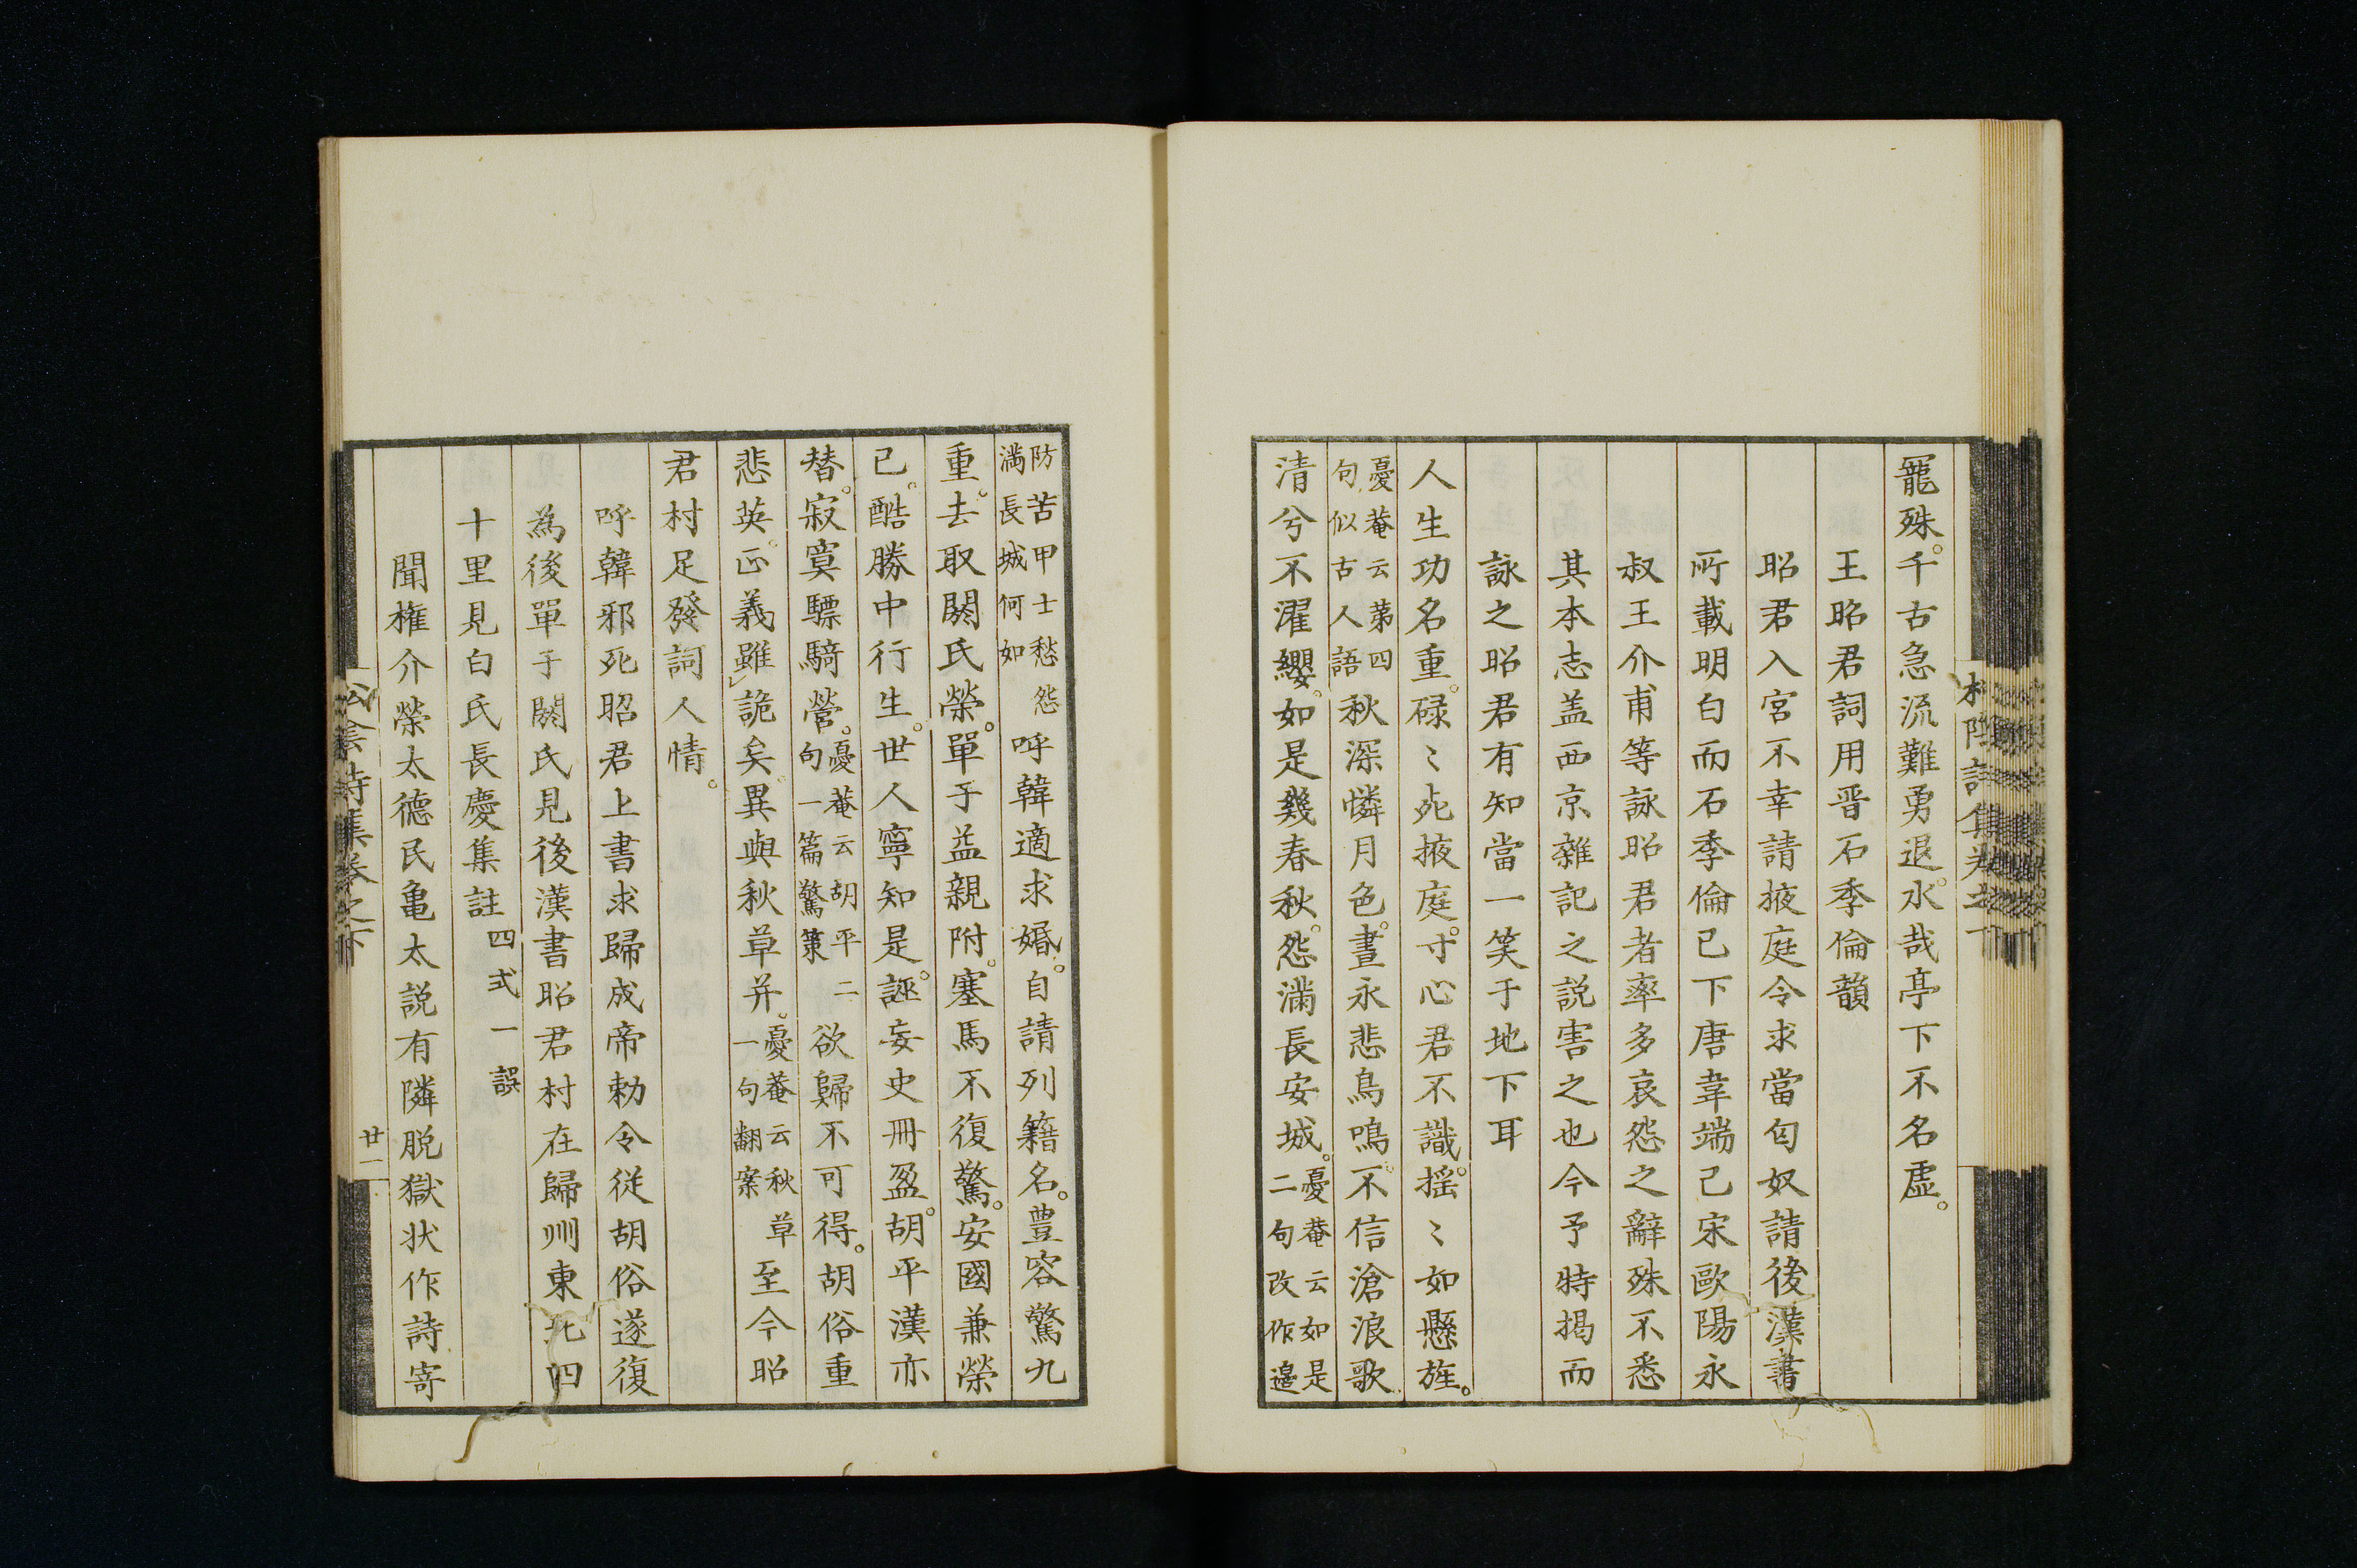 寵殊千古急流難勇退水哉亭下不名虛
王昭君詞用晋石季倫韻
昭君入宮不幸請掖庭令求當匈奴請後漢書
所載明白而石季倫已下唐韋端己宋歐陽永
叔王介甫等詠昭君者率多哀怨之辭殊不悉
其本志盖西京雜記之説害之也今予特揭而
詠之昭君有知當一笑于地下耳
人生功名重碌〻死掖庭寸心君不識揺〻如懸旌
憂菴云第四
句似古人語
秋深憐月色晝永悲鳥鳴不信滄浪歌
清兮不濯纓如是幾春秋怨滿長安城
憂菴云如是
二句改作邉
防苦甲士愁怨
滿長城何如
呼韓適求婚自請列籍名豊容驚九
重去取閼氏榮單于益親附塞馬不復驚安國兼榮
已酷勝中行生世人寧知是誣妄史冊盈胡平漢亦
替寂寞驃騎營
憂菴云胡平二
句一篇驚策
欲歸不可得胡俗重
悲英正義雖詭矣異與秋草并
憂菴云秋草
一句翻案
至今昭
君村足發詞人情
呼韓邪死昭君上書求歸成帝勅令従胡俗遂復
為後單于閼氏見後漢書昭君村在歸州東北四
十里見白氏長慶集註
四弍一誤
聞権介榮太德民亀太説有隣脱獄状作詩寄
廿一